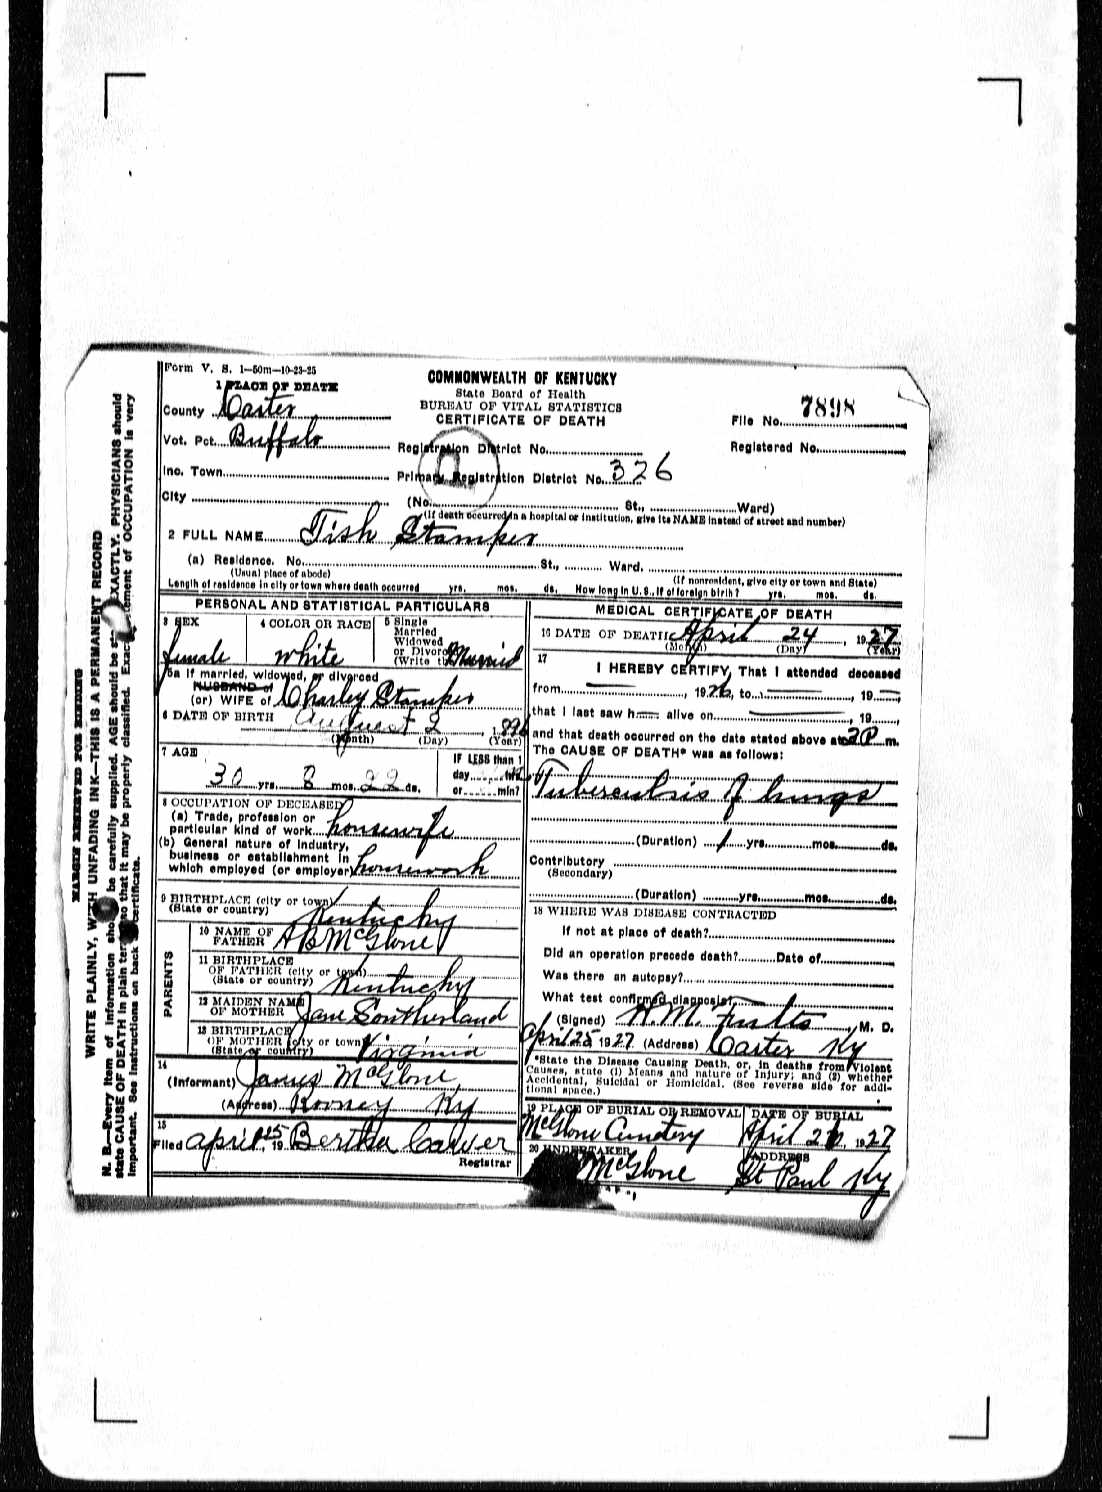 Form V. S. 1—50m—10-23-25
1 PLACE OF DEATH
COMMONWEALTH OF KENTUCKY
State Board of Health
BUREAU OF VITAL STATISTICS
CERTIFICATE OF DEATH
County Carter
File No. 7898
Vot. Pct. Buffalo
Registration District No.
Registered No.
Inc. Town
Primary Registration District No. 326
City
(No. St., Ward)
(If death occurred in a hospital or institution, give its NAME instead of street and number)
2 FULL NAME Tish Stamper
(a) Residence. No. St., Ward.
(Usual place of abode) (If nonresident, give city or town and State)
Length of residence in city or town where death occurred yrs. mos. ds. How long in U. S., if of foreign birth? yrs. mos. ds.
PERSONAL AND STATISTICAL PARTICULARS
3 SEX
female
4 COLOR OR RACE
white
5 Single
Married
Widowed
or Divorced
(Write the
Married
5a If married, widowed, or divorced
HUSBAND of
(or) WIFE of Charley Stamper
6 DATE OF BIRTH August 2, 1896
(Month) (Day) (Year)
7 AGE
30 yrs. 8 mos. 22 ds.
IF LESS than 1
day hrs.
or min?
8 OCCUPATION OF DECEASED
(a) Trade, profession or
particular kind of work housewife
(b) General nature of industry,
business or establishment in
which employed (or employer) housework
9 BIRTHPLACE (city or town)
(State or country) Kentucky
PARENTS
10 NAME OF
FATHER A B McGlone
11 BIRTHPLACE
OF FATHER (city or town)
(State or country) Kentucky
12 MAIDEN NAME
OF MOTHER Jane Southerland
13 BIRTHPLACE
OF MOTHER (city or town)
(State or country) Virginia
14
(Informant) James McGlone
(Address) Rooney Ky
15
Filed april 25 19 Bertha Carver
Registrar
MEDICAL CERTIFICATE OF DEATH
16 DATE OF DEATH April 24, 1927
(Month) (Day) (Year)
17
I HEREBY CERTIFY, That I attended deceased
from , 1926, to , 19
that I last saw h alive on , 19
and that death occurred on the date stated above at 2 P m.
The CAUSE OF DEATH* was as follows:
Tuberculsis of lungs
(Duration) 1 yrs. mos. ds.
Contributory
(Secondary)
(Duration) yrs. mos. ds.
18 WHERE WAS DISEASE CONTRACTED
If not at place of death?
Did an operation precede death? Date of
Was there an autopsy?
What test confirmed diagnosis?
(Signed) H.M. Fults, M. D.
April 25 1927 (Address) Carter Ky
*State the Disease Causing Death, or, in deaths from Violent
Causes, state (1) Means and nature of Injury; and (2) whether
Accidental, Suicidal or Homicidal. (See reverse side for addi-
tional space.)
19 PLACE OF BURIAL OR REMOVAL
McGlone Cemetery
DATE OF BURIAL
April 26, 1927
20 UNDERTAKER
McGlone
ADDRESS
St Paul Ky
MARGIN RESERVED FOR BINDING
WRITE PLAINLY, WITH UNFADING INK—THIS IS A PERMANENT RECORD
N. B.—Every item of information should be carefully supplied. AGE should be stated EXACTLY. PHYSICIANS should
state CAUSE OF DEATH in plain terms, so that it may be properly classified. Exact statement of OCCUPATION is very
important. See instructions on back of certificate.